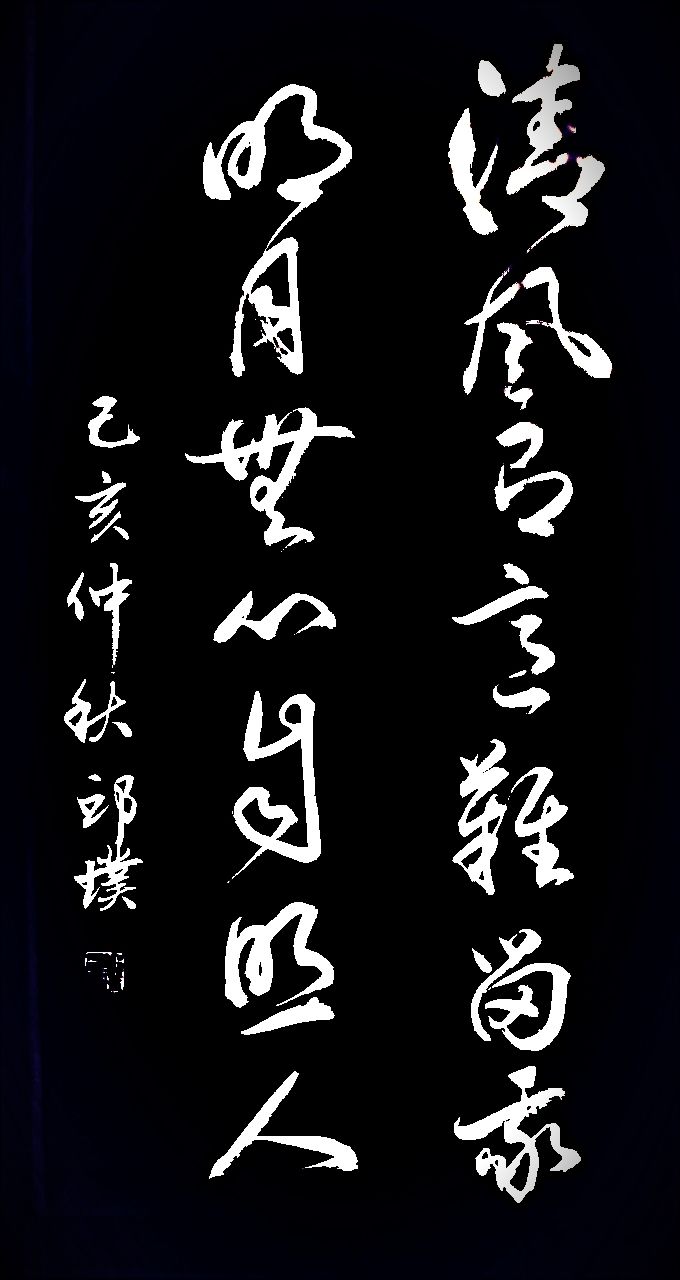 清風有意難留我
明月無心自照人
己亥仲秋邱璞